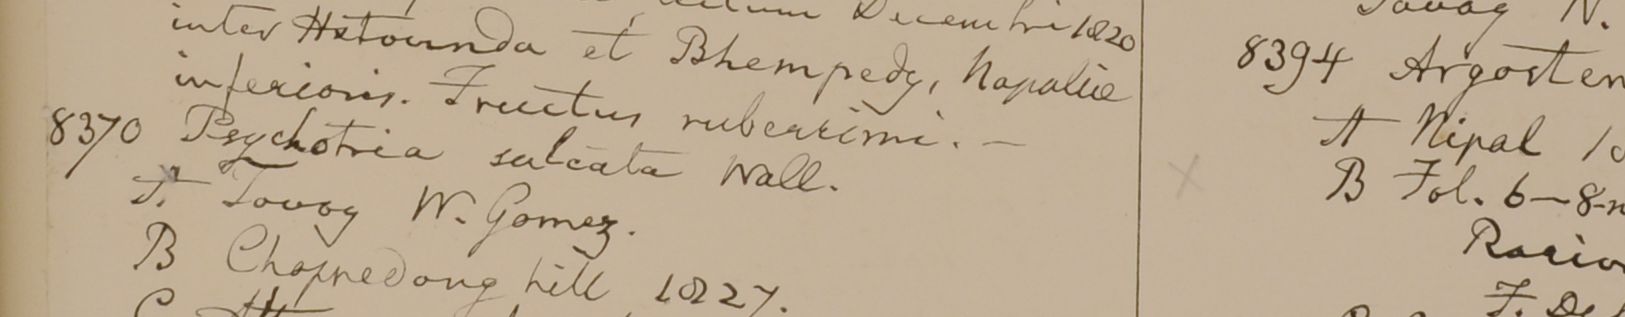 Decembri 1820
inter Hetounda et Bhempedy, Napaliæ
inferioris. Fructus ruberrimi. —
8370 Psychotria sulcata Wall.
A. Tavoy W. Gomez.
B Chapnedong hill 1827.
C
Tavoy N.
8394 Argostem
A Nipal 1
B Fol. 6-8-n